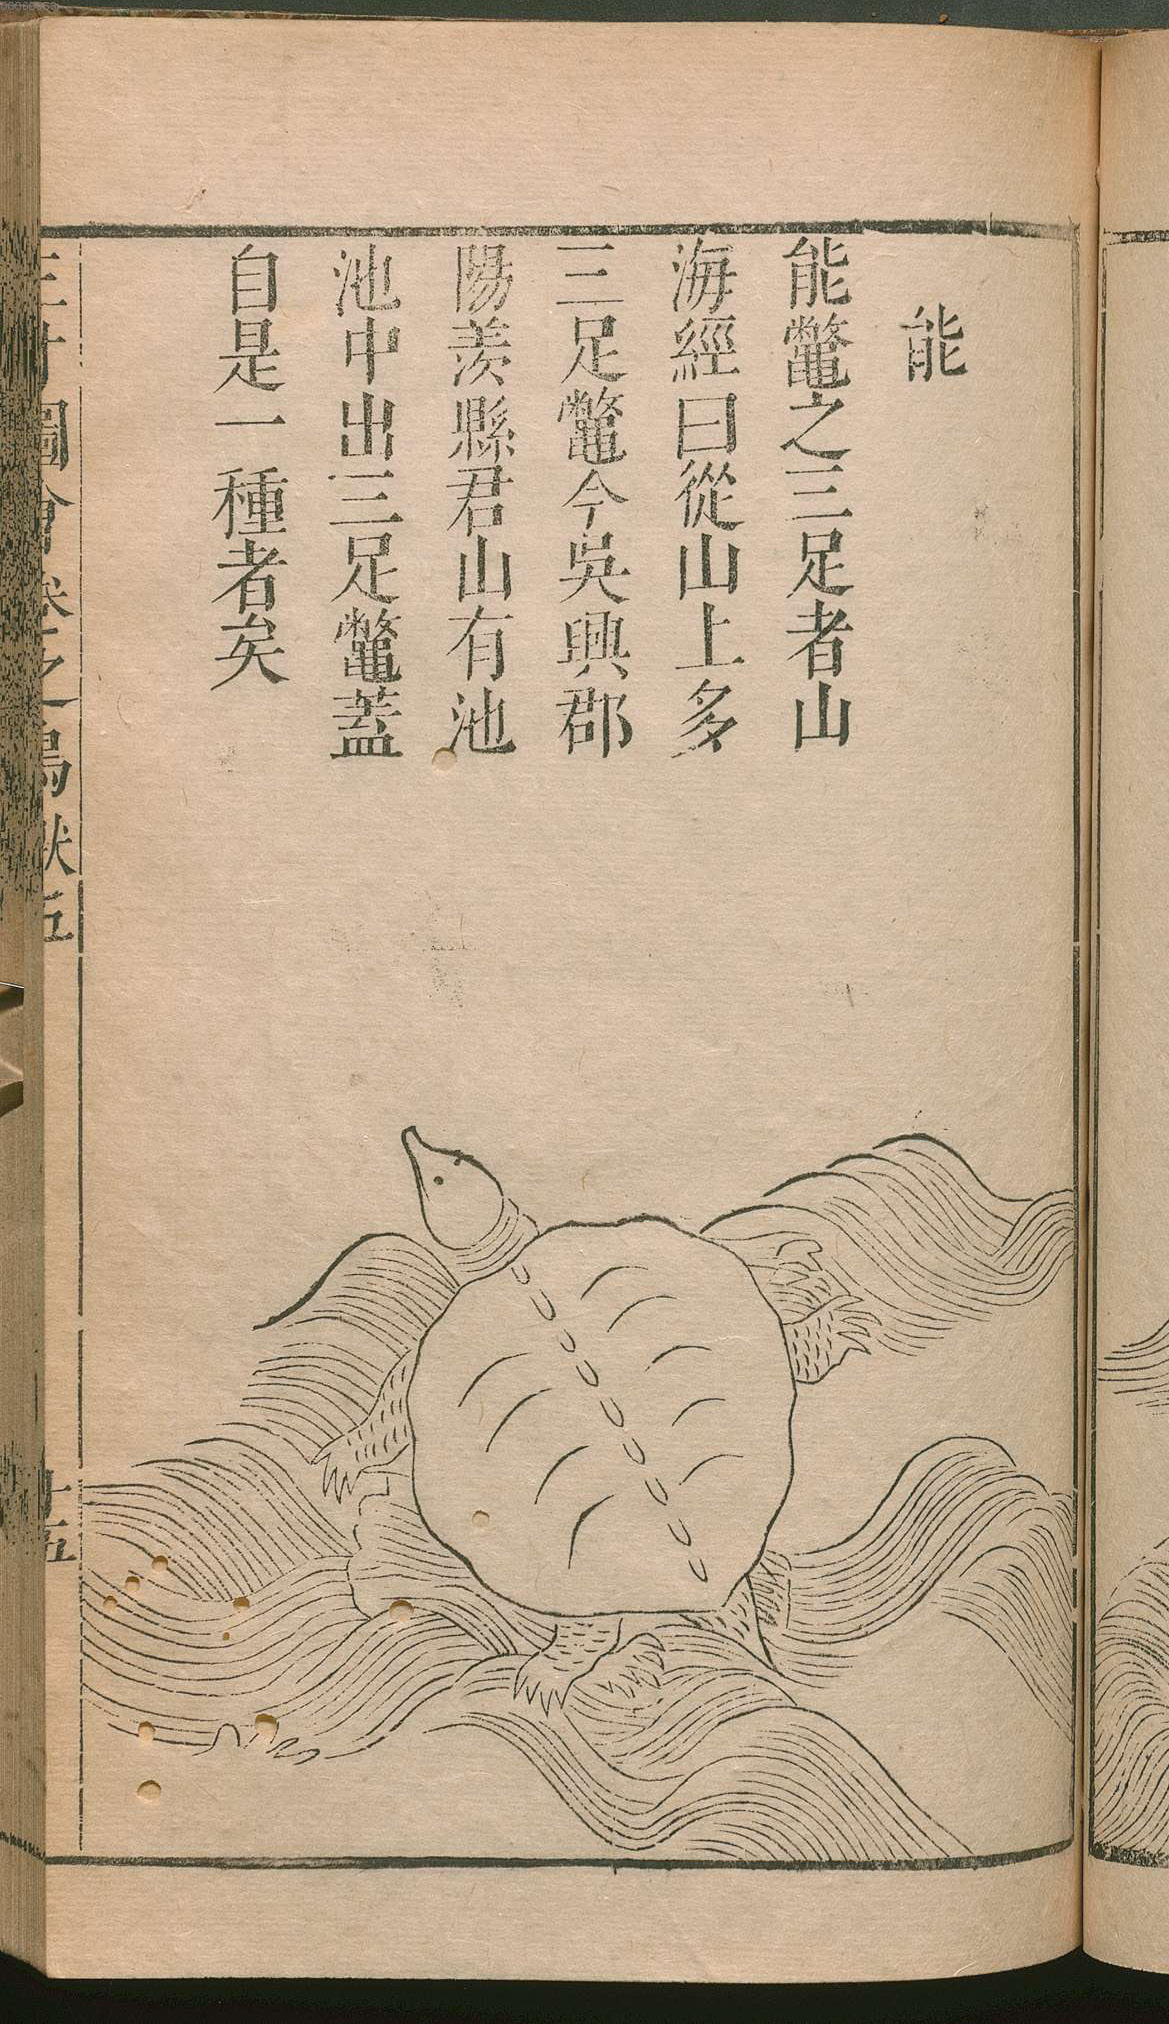 能
能鼈之三足者山
海經曰從山上多
三足鼈今吳興郡
陽羨縣君山有池
池中出三足鼈蓋
自是一種者矣
三才圖會卷之鳥獸五
十五